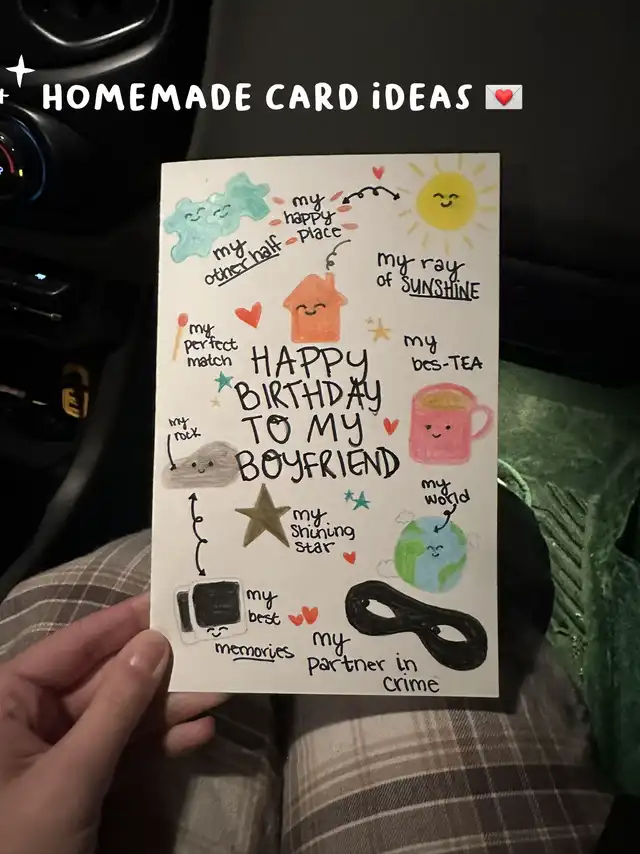 HOMEMADE CARD iDEAS
my
happy
place
my
other half
my ray
of SUNSHINE
my
perfect
match
my
bes-TEA
HAPPY
BIRTHDAY
TO MY
BOYFRIEND
my
rock
my
world
my
shining
star
my
best
memories
my
partner in
crime